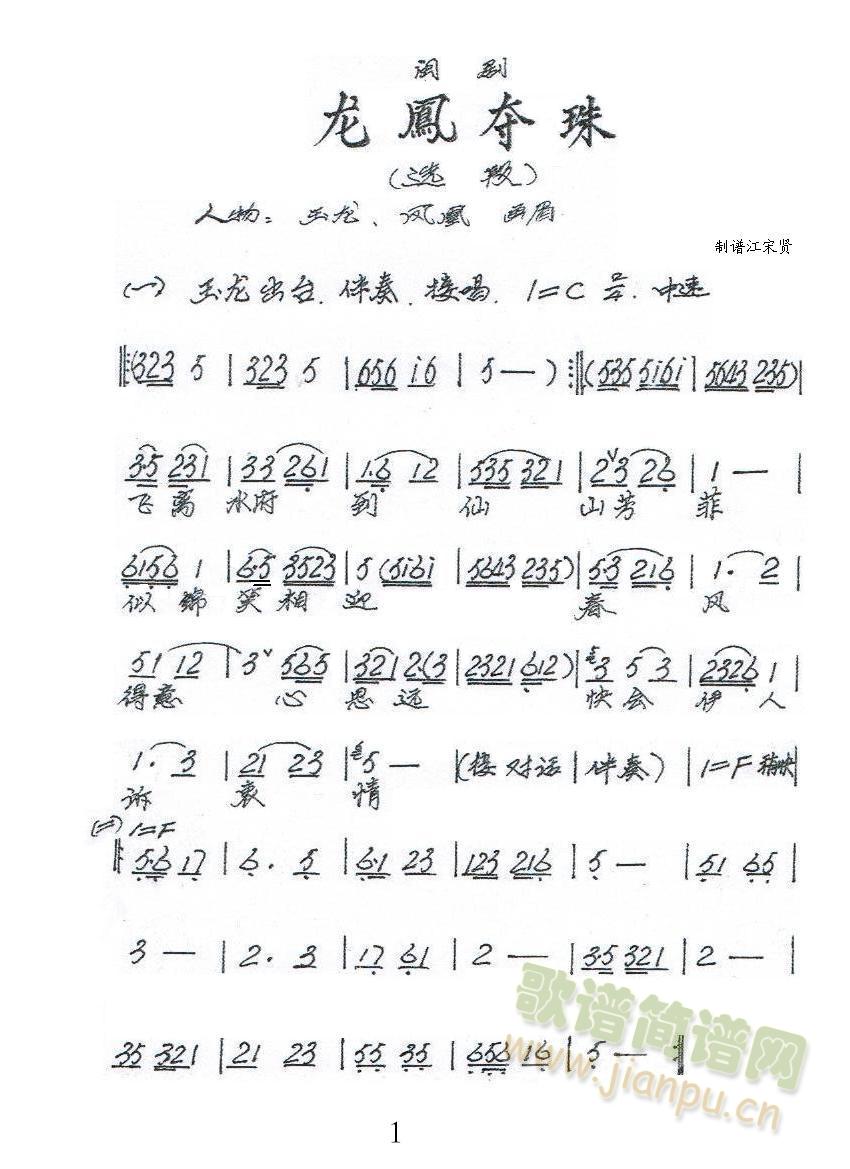 闽剧
龙鳳夺珠
(选段)
人物：玉龙、凤凰 画眉
制谱江宋贤
(一) 玉龙出台.伴奏.接唱. 1=C 2/4. 中速
‖:(323 5 | 323 5 | 656 i6 | 5 — ) :‖(535 5i6i | 5643 235)|
3·5 231 | 33 261 | 1·6 12 | 535 321 | 2ˇ3 26 | 1 — |
飞离水府到仙山芳菲
6156 1 | 6·5 3523 | 5 (5i6i | 5643 235) | 5·3 216 | 1· 2 |
似锦笑相迎 春风
51 12 | 3ˇ 565 | 321 2·(3 | 2321 612) | 3 5 3 | 2326 1 |
得意 心思远 快会伊人
1· 3 | 21 23 | 5 — |(接对话 | 伴奏) | 1=F 稍快|
诉衷情
(二) 1=F
‖: 5·6 17 | 6· 5 | 6·1 23 | 123 216 | 5 — | 51 65 |
3 — | 2· 3 | 17 61 | 2 — | 3·5 321 | 2 — |
35 321 | 21 23 | 55 35 | 656 16 | 5 — :‖
歌谱简谱网
www.jianpu.cn
1